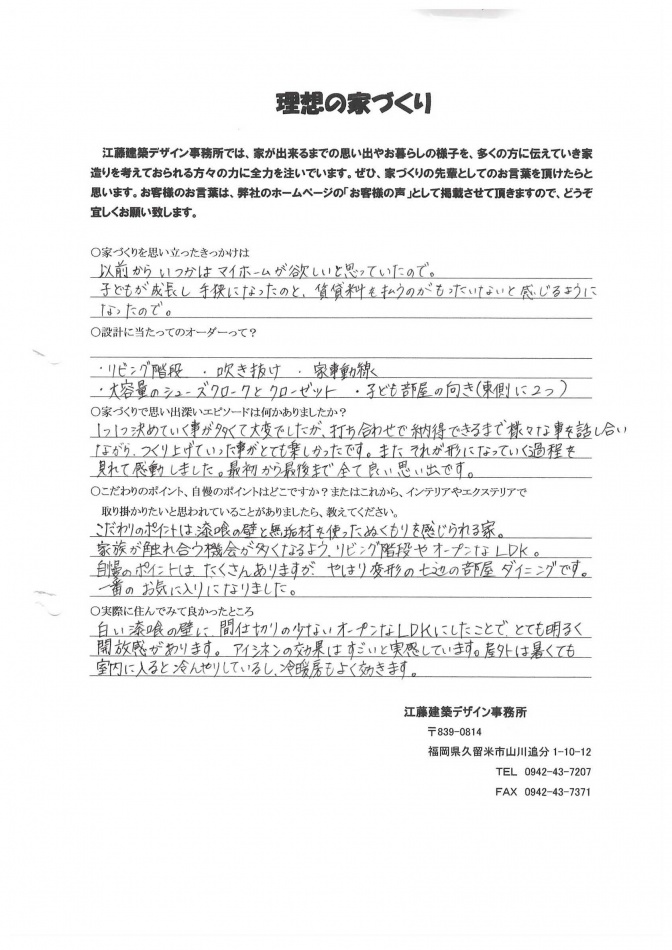 理想の家づくり
江藤建築デザイン事務所では、家が出来るまでの思い出やお暮らしの様子を、多くの方に伝えていき家
造りを考えておられる方々の力に全力を注いでいます。ぜひ、家づくりの先輩としてのお言葉を頂けたらと
思います。お客様のお言葉は、弊社のホームページの「お客様の声」として掲載させて頂きますので、どうぞ
宜しくお願い致します。
○家づくりを思い立ったきっかけは
以前からいつかはマイホームが欲しいと思っていたので。
子どもが成長し手狭になったのと、賃貸料も払うのがもったいないと感じるように
なったので。
○設計に当たってのオーダーって？
・リビング階段 ・吹き抜け ・家事動線
・大容量のシューズクロークとクローゼット ・子ども部屋の向き(東側に2つ)
○家づくりで思い出深いエピソードは何かありましたか？
1つ1つ決めていく事が多くて大変でしたが、打ち合わせで納得できるまで様々な事を話し合い
ながら、つくり上げていった事がとても楽しかったです。また それが形になっていく過程を
見れて感動しました。最初から最後まで全て良い思い出です。
○こだわりのポイント、自慢のポイントはどこですか？またはこれから、インテリアやエクステリアで
取り掛かりたいと思われていることがありましたら、教えてください。
こだわりのポイントは漆喰の壁と無垢材を使ったぬくもりを感じられる家。
家族が触れ合う機会が多くなるよう、リビング階段やオープンなLDK。
自慢のポイントは、たくさんありますが、やはり変形の七辺の部屋 ダイニングです。
一番のお気に入りになりました。
○実際に住んでみて良かったところ
白い漆喰の壁に、間仕切りの少ないオープンなLDKにしたことで、とても明るく
開放感があります。 アイシネンの効果はすごいと実感しています。屋外は暑くても
室内に入ると冷んやりしているし、冷暖房もよく効きます。
江藤建築デザイン事務所
〒839-0814
福岡県久留米市山川追分 1-10-12
TEL 0942-43-7207
FAX 0942-43-7371